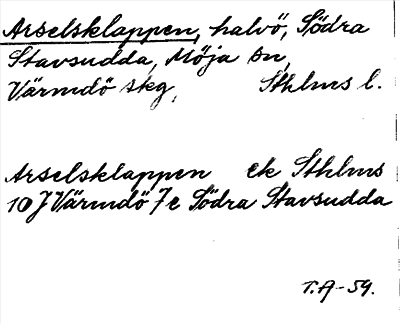 Arselsklappen, halvö, Södra
Stavsudda, Möja sn,
Värmdö skg, Sthlms l.
Arselsklappen ek Sthlms
10 J Värmdö 7 e Södra Stavsudda
T.A-59.